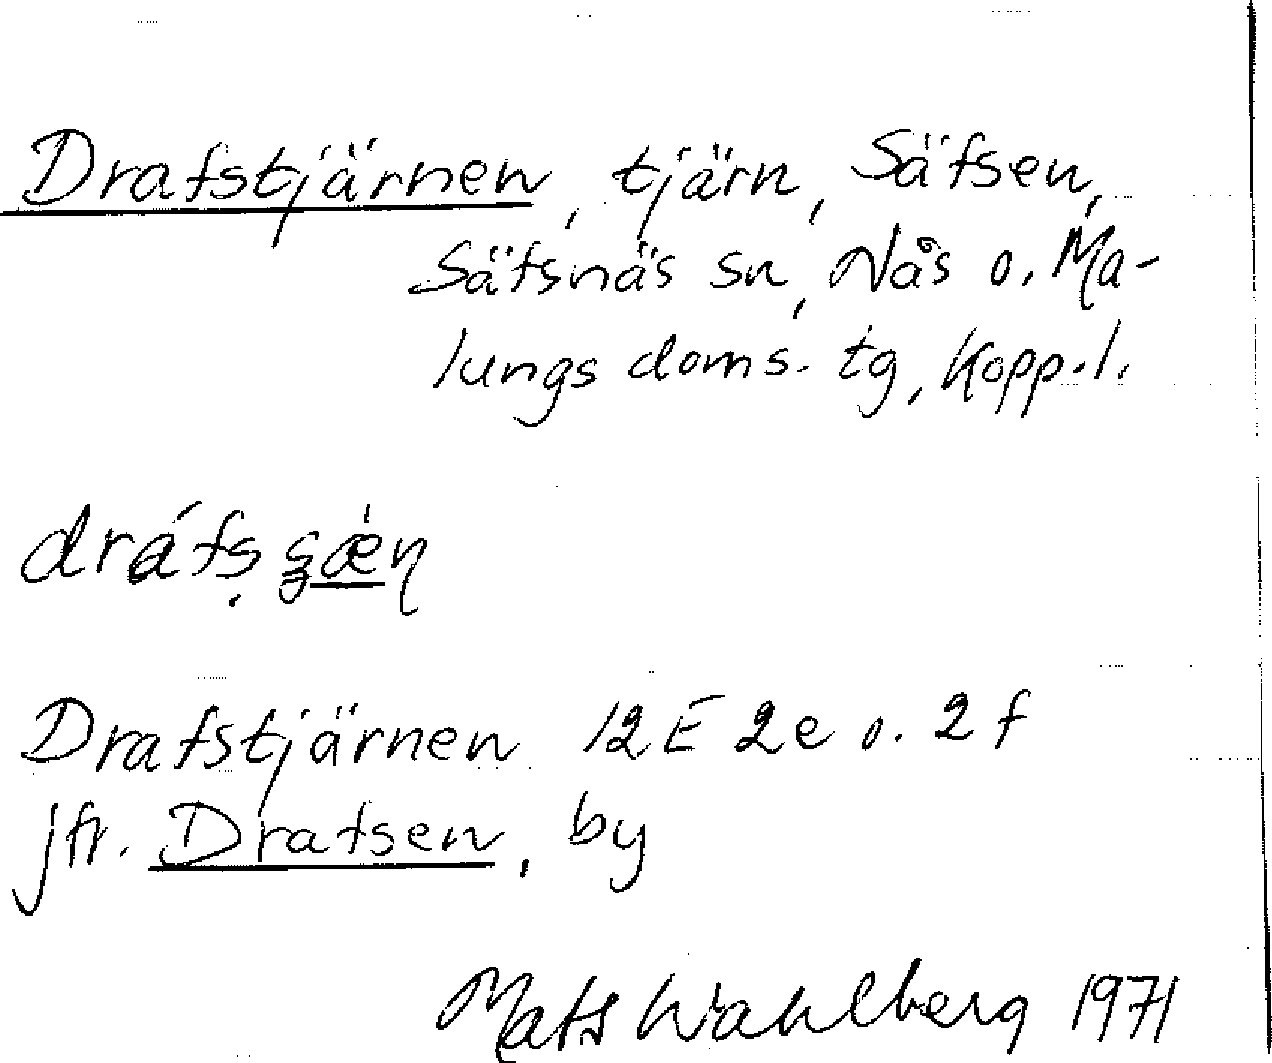 Drafstjärnen, tjärn, Säfsen,
Säfsnäs sn, Nås o. Ma-
lungs doms. tg, Kopp.l.
Drafstjärnen 12E 2e o. 2f
jfr. Drafsen, by
Mats Wahlberg 1971